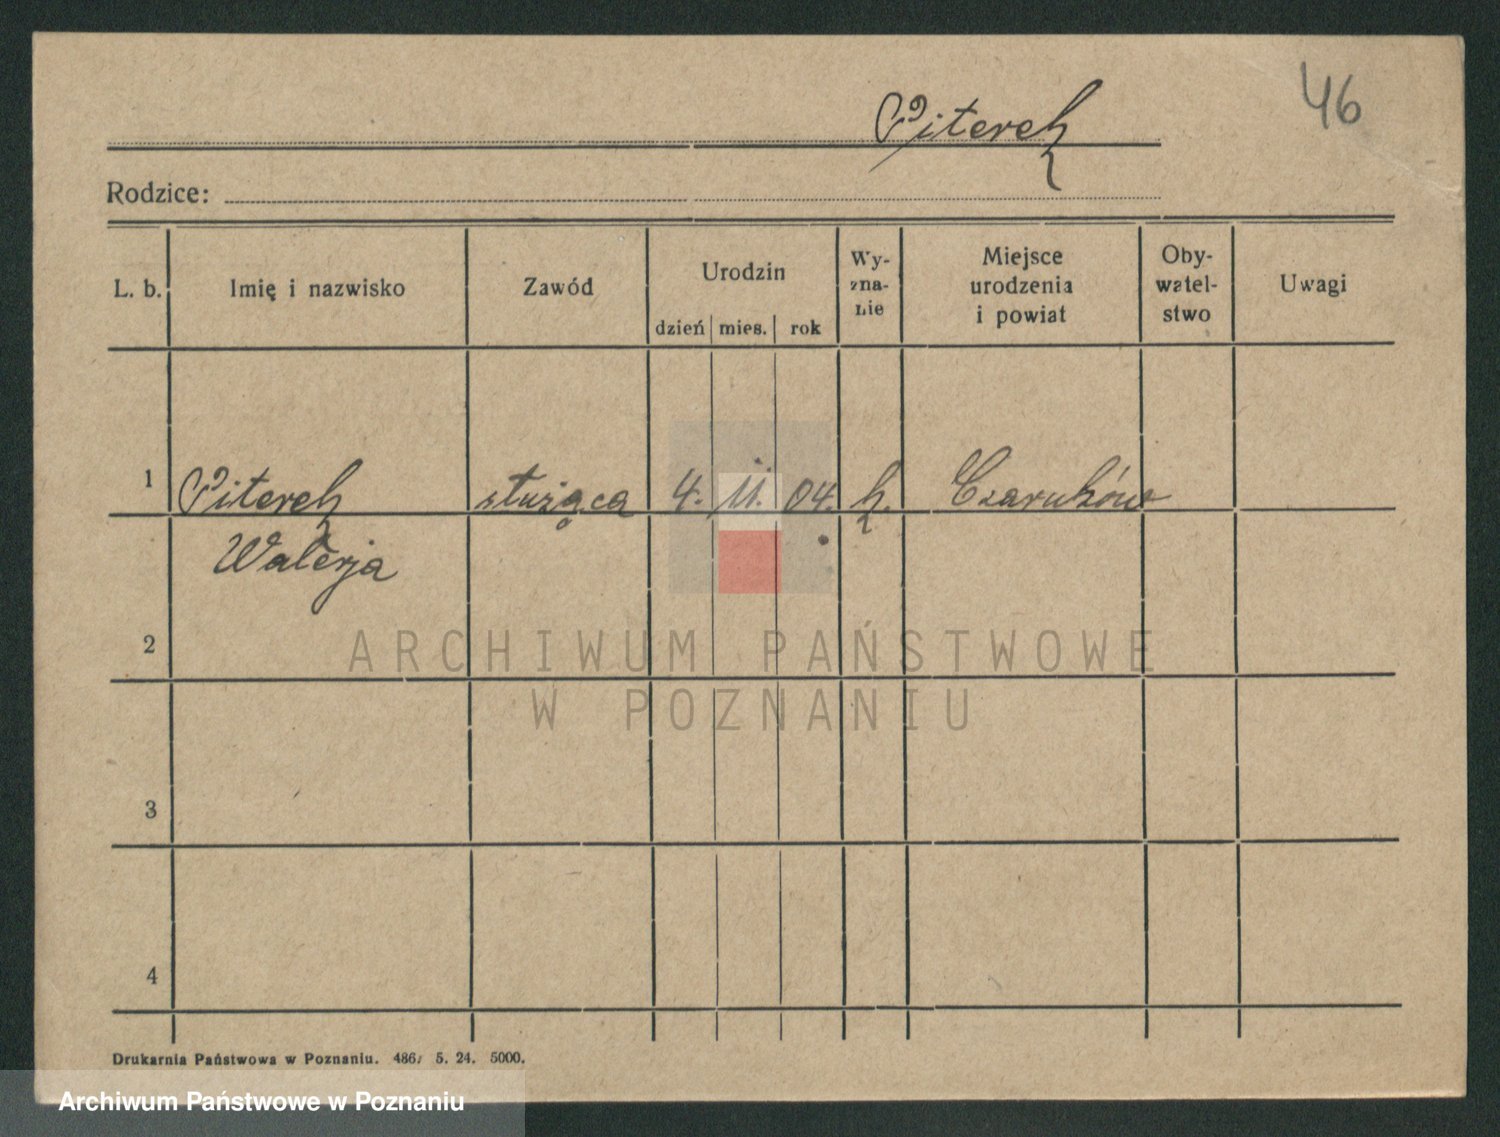 46
Piterek
Rodzice:
L. b. Imię i nazwisko Zawód Urodzin dzień mies. rok Wy-zna-nie Miejsce urodzenia i powiat Oby-watel-stwo Uwagi
1 Piterek służąca 4. 11. 04. k. Czarnków
Walerja
2
ARCHIWUM PAŃSTWOWE
W POZNANIU
3
4
Drukarnia Państwowa w Poznaniu. 486/ 5. 24. 5000.
Archiwum Państwowe w Poznaniu